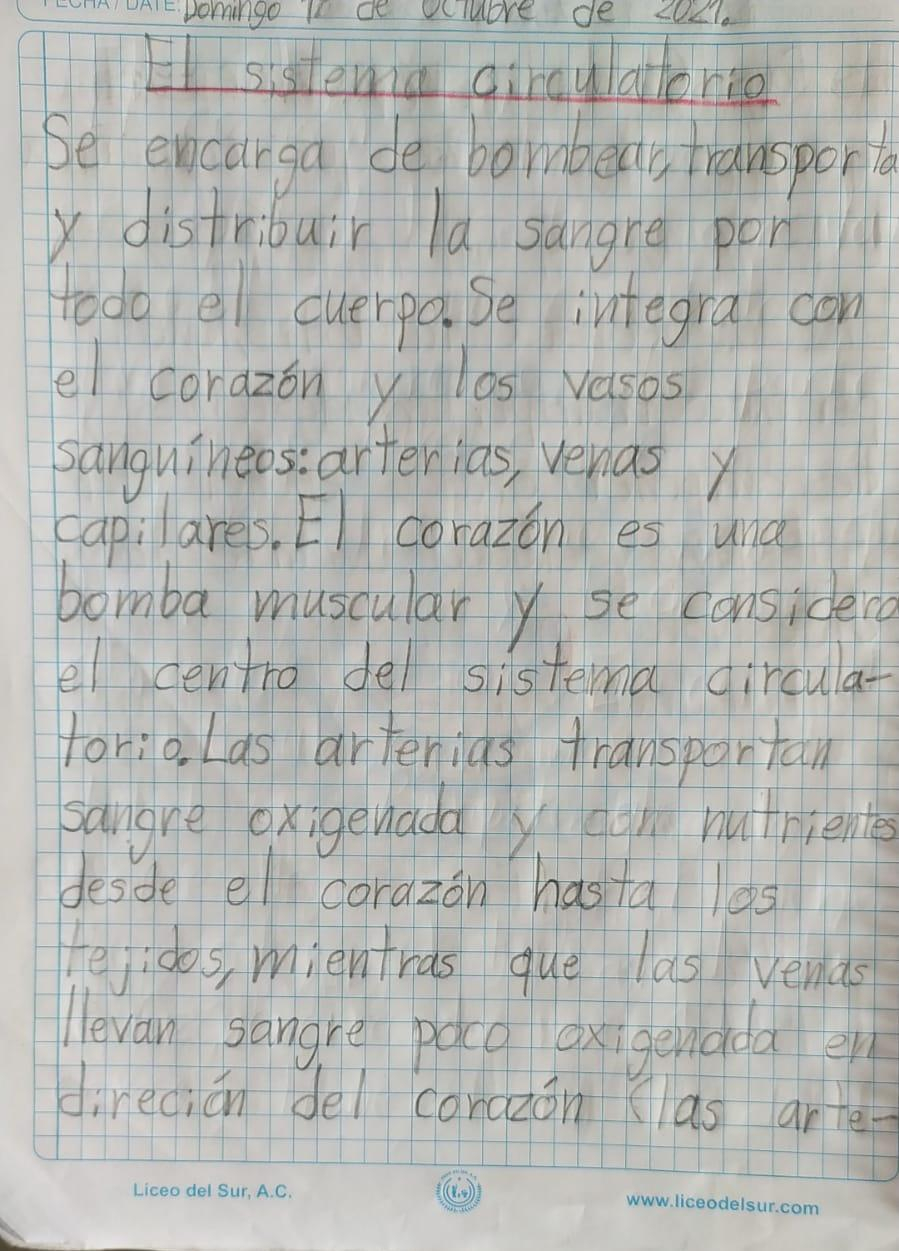 FECHA / DATE: Domingo de Octubre de 2021.
El sistema circulatorio
Se encarga de bombear, transporta
y distribuir la sangre por
todo el cuerpo. Se integra con
el corazón y los vasos
sanguíneos: arterias, venas y
capilares. El corazón es una
bomba muscular y se considera
el centro del sistema circula-
torio. Las arterias transportan
sangre oxigenada y con nutrientes
desde el corazón hasta los
tejidos, mientras que las venas
llevan sangre poco oxigenada en
direción del corazón (las arte-
Liceo del Sur, A.C.
www.liceodelsur.com